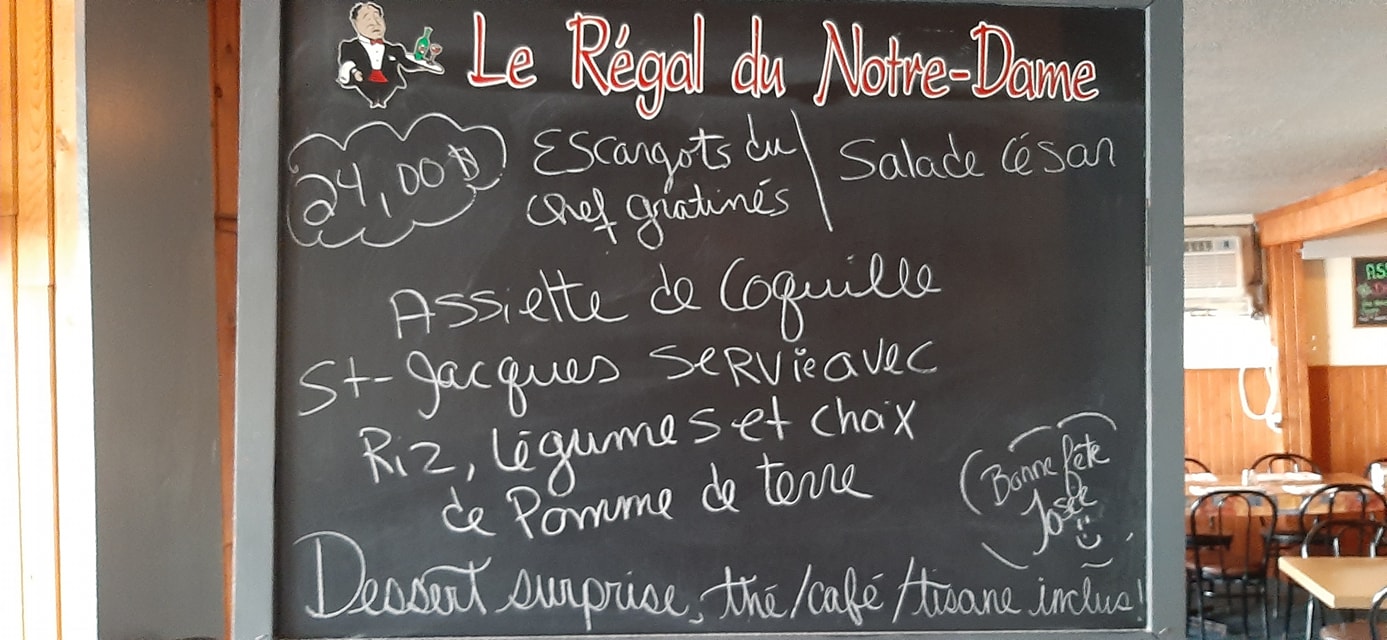 Le Régal du Notre-Dame
24,00$
Escargots du / Salade César
chef gratinés
Assiette de Coquille
St-Jacques servie avec
Riz, légumes et choix
de Pomme de terre
Bonne fête
Josée
Dessert surprise, thé/café/tisane inclus!